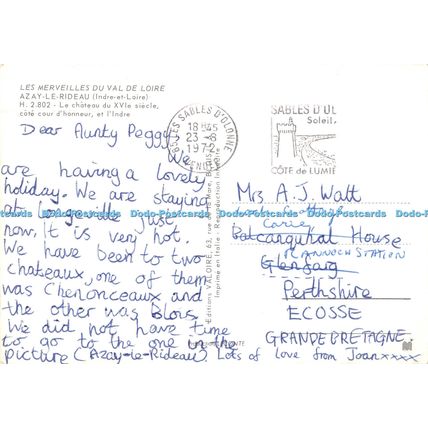 LES MERVEILLES DU VAL DE LOIRE
AZAY-LE-RIDEAU (Indre-et-Loire)
H. 2.802 - Le château du XVIe siècle,
côté cour d'honneur, et l'Indre
Dear Aunty Peggy,
We
are having a lovely
holiday. We are staying
at just
now. It is very hot.
We have been to two
chateaux, one of them
was Chenonceaux and
the other was Blois.
We did not have time
to go to the one in the
picture (Azay-le-Rideau). Lots of love from Joan xxxx
85 LES SABLES D'OLONNE
18H45
23 -8
1972
VENDEE
SABLES D'OL
Soleil
CÔTE de LUMIÈ
Editions VALOIRE, 63, rue
Imprimé en Italie - Reproduction interdite
Mrs A. J. Watt
House
RANNOCH STATION
Perthshire
ECOSSE
GRANDE BRETAGNE.
Dodo-Postcards Dodo-Postcards Dodo-Postcards Dodo-Postcards